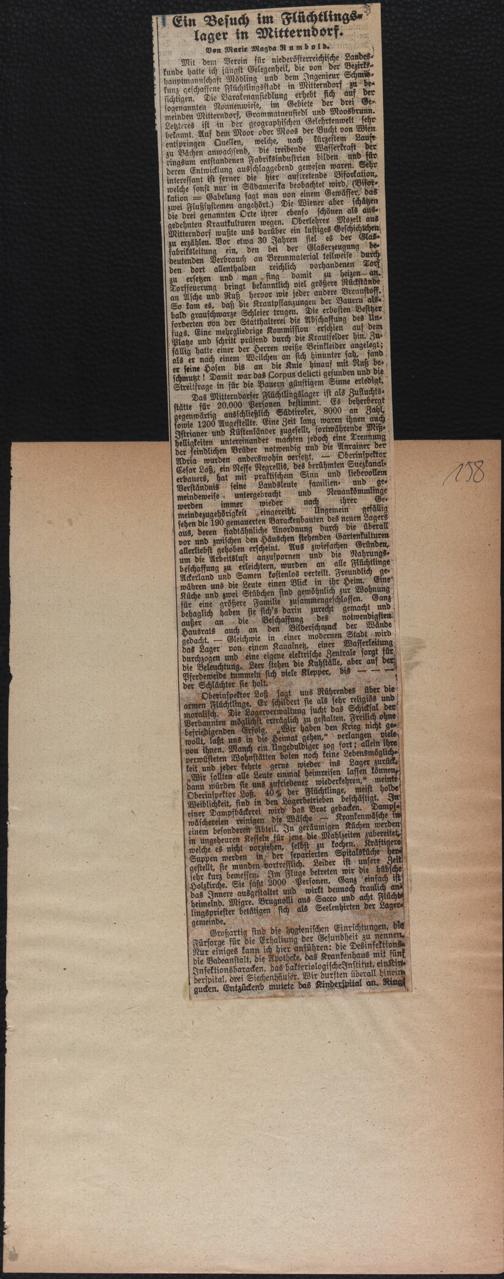 Ein Besuch im Flüchtlings-
lager in Mitterndorf.
Von Marie Magda Rumbold.
Mit dem Verein für niederösterreichische Landes-
kunde hatte ich jüngst Gelegenheit, die von der Bezirks-
hauptmannschaft Mödling und dem Ingenieur
kunz geschaffene Flüchtlingsstadt in Mitterndorf zu be-
sichtigen. Die Barackenansiedlung erhebt sich auf der
sogenannten Nonnenwiese, im Gebiete der drei Ge-
meinden Mitterndorf, Grammatneusiedl und Moosbrunn.
Letzteres ist in der geographischen Gelehrtenwelt sehr
bekannt. Auf dem Moor oder Moos der Bucht von Wien
entspringen Quellen, welche, nach kürzestem Laufe
zu Bächen anwachsend, die treibende Wasserkraft der
ringsum entstandenen Fabriksindustrien bilden und für
deren Entwicklung ausschlaggebend gewesen waren. Sehr
interessant ist ferner die hier auftretende Bifurkation,
welche sonst nur in Südamerika beobachtet wird. (Bifur-
kation = Gabelung sagt man von einem Gewässer, das
zwei Flußsystemen angehört.) Die Wiener aber schätzen
die drei genannten Orte ihrer ebenso schönen als aus-
gedehnten Krautkulturen wegen. Oberlehrer Mozelt aus
Mitterndorf wußte uns darüber ein lustiges Geschichtchen
zu erzählen. Vor etwa 30 Jahren fiel es der Glas-
fabriksleitung ein, den bei der Glaserzeugung be-
deutenden Verbrauch an Brennmaterial teilweise durch
den dort allenthalben reichlich vorhandenen Torf
zu ersetzen und man fing damit zu heizen an.
Torffeuerung bringt bekanntlich viel größere Rückstände
an Asche und Ruß hervor wie jeder andere Brennstoff.
So kam es, daß die Krautpflanzungen der Bauern als-
bald grauschwarze Schleier trugen. Die erbosten Besitzer
forderten von der Statthalterei die Abschaffung des Un-
fugs. Eine mehrgliedrige Kommission erschien auf dem
Platze und schritt prüfend durch die Krautfelder hin. Zu-
fällig hatte einer der Herren weiße Beinkleider angelegt;
als er nach einem Weilchen an sich hinunter sah, fand
er seine Hosen bis an die Knie hinauf mit Ruß be-
schmutzt! Damit war das Corpus delicti gefunden und die
Streitfrage in für die Bauern günstigem Sinne erledigt.
Das Mitterndorfer Flüchtlingslager ist als Zufluchts-
stätte für 20.000 Personen bestimmt. Es beherbergt
gegenwärtig ausschließlich Südtiroler, 8000 an Zahl,
sowie 1200 Angestellte. Eine Zeit lang waren ihnen auch
Istrianer und Küstenländer zugesellt, fortwährende Miß-
helligkeiten untereinander machten jedoch eine Trennung
der feindlichen Brüder notwendig und die Anrainer der
Adria wurden anderswohin versetzt. — Oberinspektor
Cesar Loß, ein Neffe Negrellis, des berühmten Suezkanal-
erbauers, hat mit praktischem Sinn und liebevollem
Verständnis seine Landsleute familien- und ge-
meindeweise untergebracht und Neuankömmlinge
werden immer wieder nach ihrer Ge-
meindezugehörigkeit eingereiht. Ungemein gefällig
sehen die 190 gemauerten Barackenbauten des neuen Lagers
aus, deren stadtähnliche Anordnung durch die überall
vor und zwischen den Häuschen stehenden Gartenkulturen
allerliebst gehoben erscheint. Aus zwiefachen Gründen,
um die Arbeitslust anzuspornen und die Nahrungs-
beschaffung zu erleichtern, wurden an alle Flüchtlinge
Ackerland und Samen kostenlos verteilt. Freundlich ge-
währen uns die Leute einen Blick in ihr Heim. Eine
Küche und zwei Stübchen sind gewöhnlich zur Wohnung
für eine größere Familie zusammengeschlossen. Ganz
behaglich haben sie sich's darin zurecht gemacht und
außer an die Beschaffung des notwendigsten
Hausrats auch an den Bilderschmuck der Wände
gedacht. — Gleichwie in einer modernen Stadt wird
das Lager von einem Kanalnetz, einer Wasserleitung
durchzogen und eine eigene elektrische Zentrale sorgt für
die Beleuchtung. Leer stehen die Kuhställe, aber auf der
Pferdeweide tummeln sich viele Klepper, bis — — —
der Schlächter sie holt.
Oberinspektor Loß sagt uns Rührendes über die
armen Flüchtlinge. Er schildert sie als sehr religiös und
moralisch. Die Lagerverwaltung sucht das Schicksal der
Verbannten möglichst erträglich zu gestalten. Freilich ohne
befriedigenden Erfolg. „Wir haben den Krieg nicht ge-
wollt, laßt uns in die Heimat gehen,“ verlangen viele
von ihnen. Manch ein Ungeduldiger zog fort; allein ihre
verwüsteten Wohnstätten boten noch keine Lebensmöglich-
keit und jeder kehrte gerne wieder ins Lager zurück.
„Wir sollten alle Leute einmal heimreisen lassen können,
dann würden sie uns zufriedener wiederkehren,“ meinte
Oberinspektor Loß. 40% der Flüchtlinge, meist holde
Weiblichkeit, sind in den Lagerbetrieben beschäftigt. In
einer Dampfbäckerei wird das Brot gebacken. Dampf-
wäschereien reinigen die Wäsche — Krankenwäsche in
einem besonderen Abteil. In geräumigen Küchen werden
in ungeheuren Kesseln für jene die Mahlzeiten zubereitet,
welche es nicht vorziehen, selbst zu kochen. Kräftigere
Suppen werden in der separierten Spitalsküche her-
gestellt, sie munden vortrefflich. Leider ist unsere Zeit
sehr kurz bemessen. Im Fluge betreten wir die hübsche
Holzkirche. Sie faßt 2000 Personen. Ganz einfach ist
das Innere ausgestaltet und wirkt dennoch traulich an-
heimelnd. Msgre. Brugnolli aus Sacco und acht Flücht-
lingspriester betätigen sich als Seelenhirten der Lager-
gemeinde.
Großartig sind die hygienischen Einrichtungen, die
Fürsorge für die Erhaltung der Gesundheit zu nennen.
Nur einiges kann ich hier anführen: die Desinfektions-
die Badeanstalt, die Apotheke, das Krankenhaus mit fünf
Infektionsbaracken, das bakteriologische Institut, ein Kin-
derspital, drei Siechenhäuser. Wir durften überall hinein-
gucken. Entzückend mutete das Kinderspital an. Rings
158